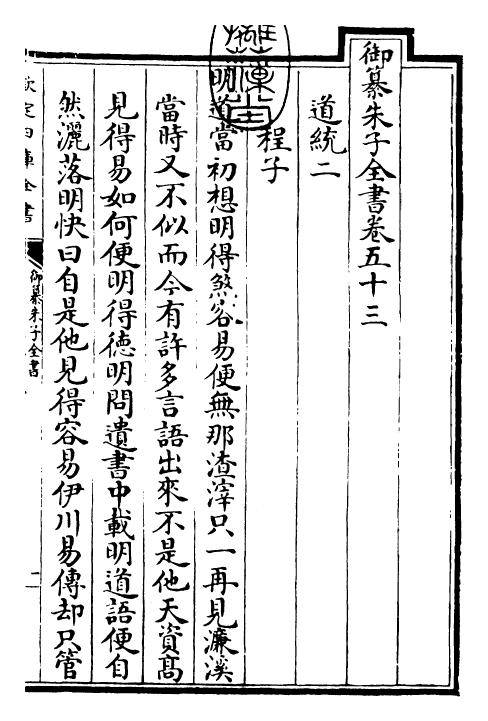 御纂朱子全書卷五十三
道統二
程子
明道當初想明得煞容易便無那渣滓只一再見濂溪
當時又不似而今有許多言語出來不是他天資高
見得易如何便明得德明問遺書中載明道語便自
然灑落明快曰自是他見得容易伊川易傳却只管
欽定四庫全書
御纂朱子全書